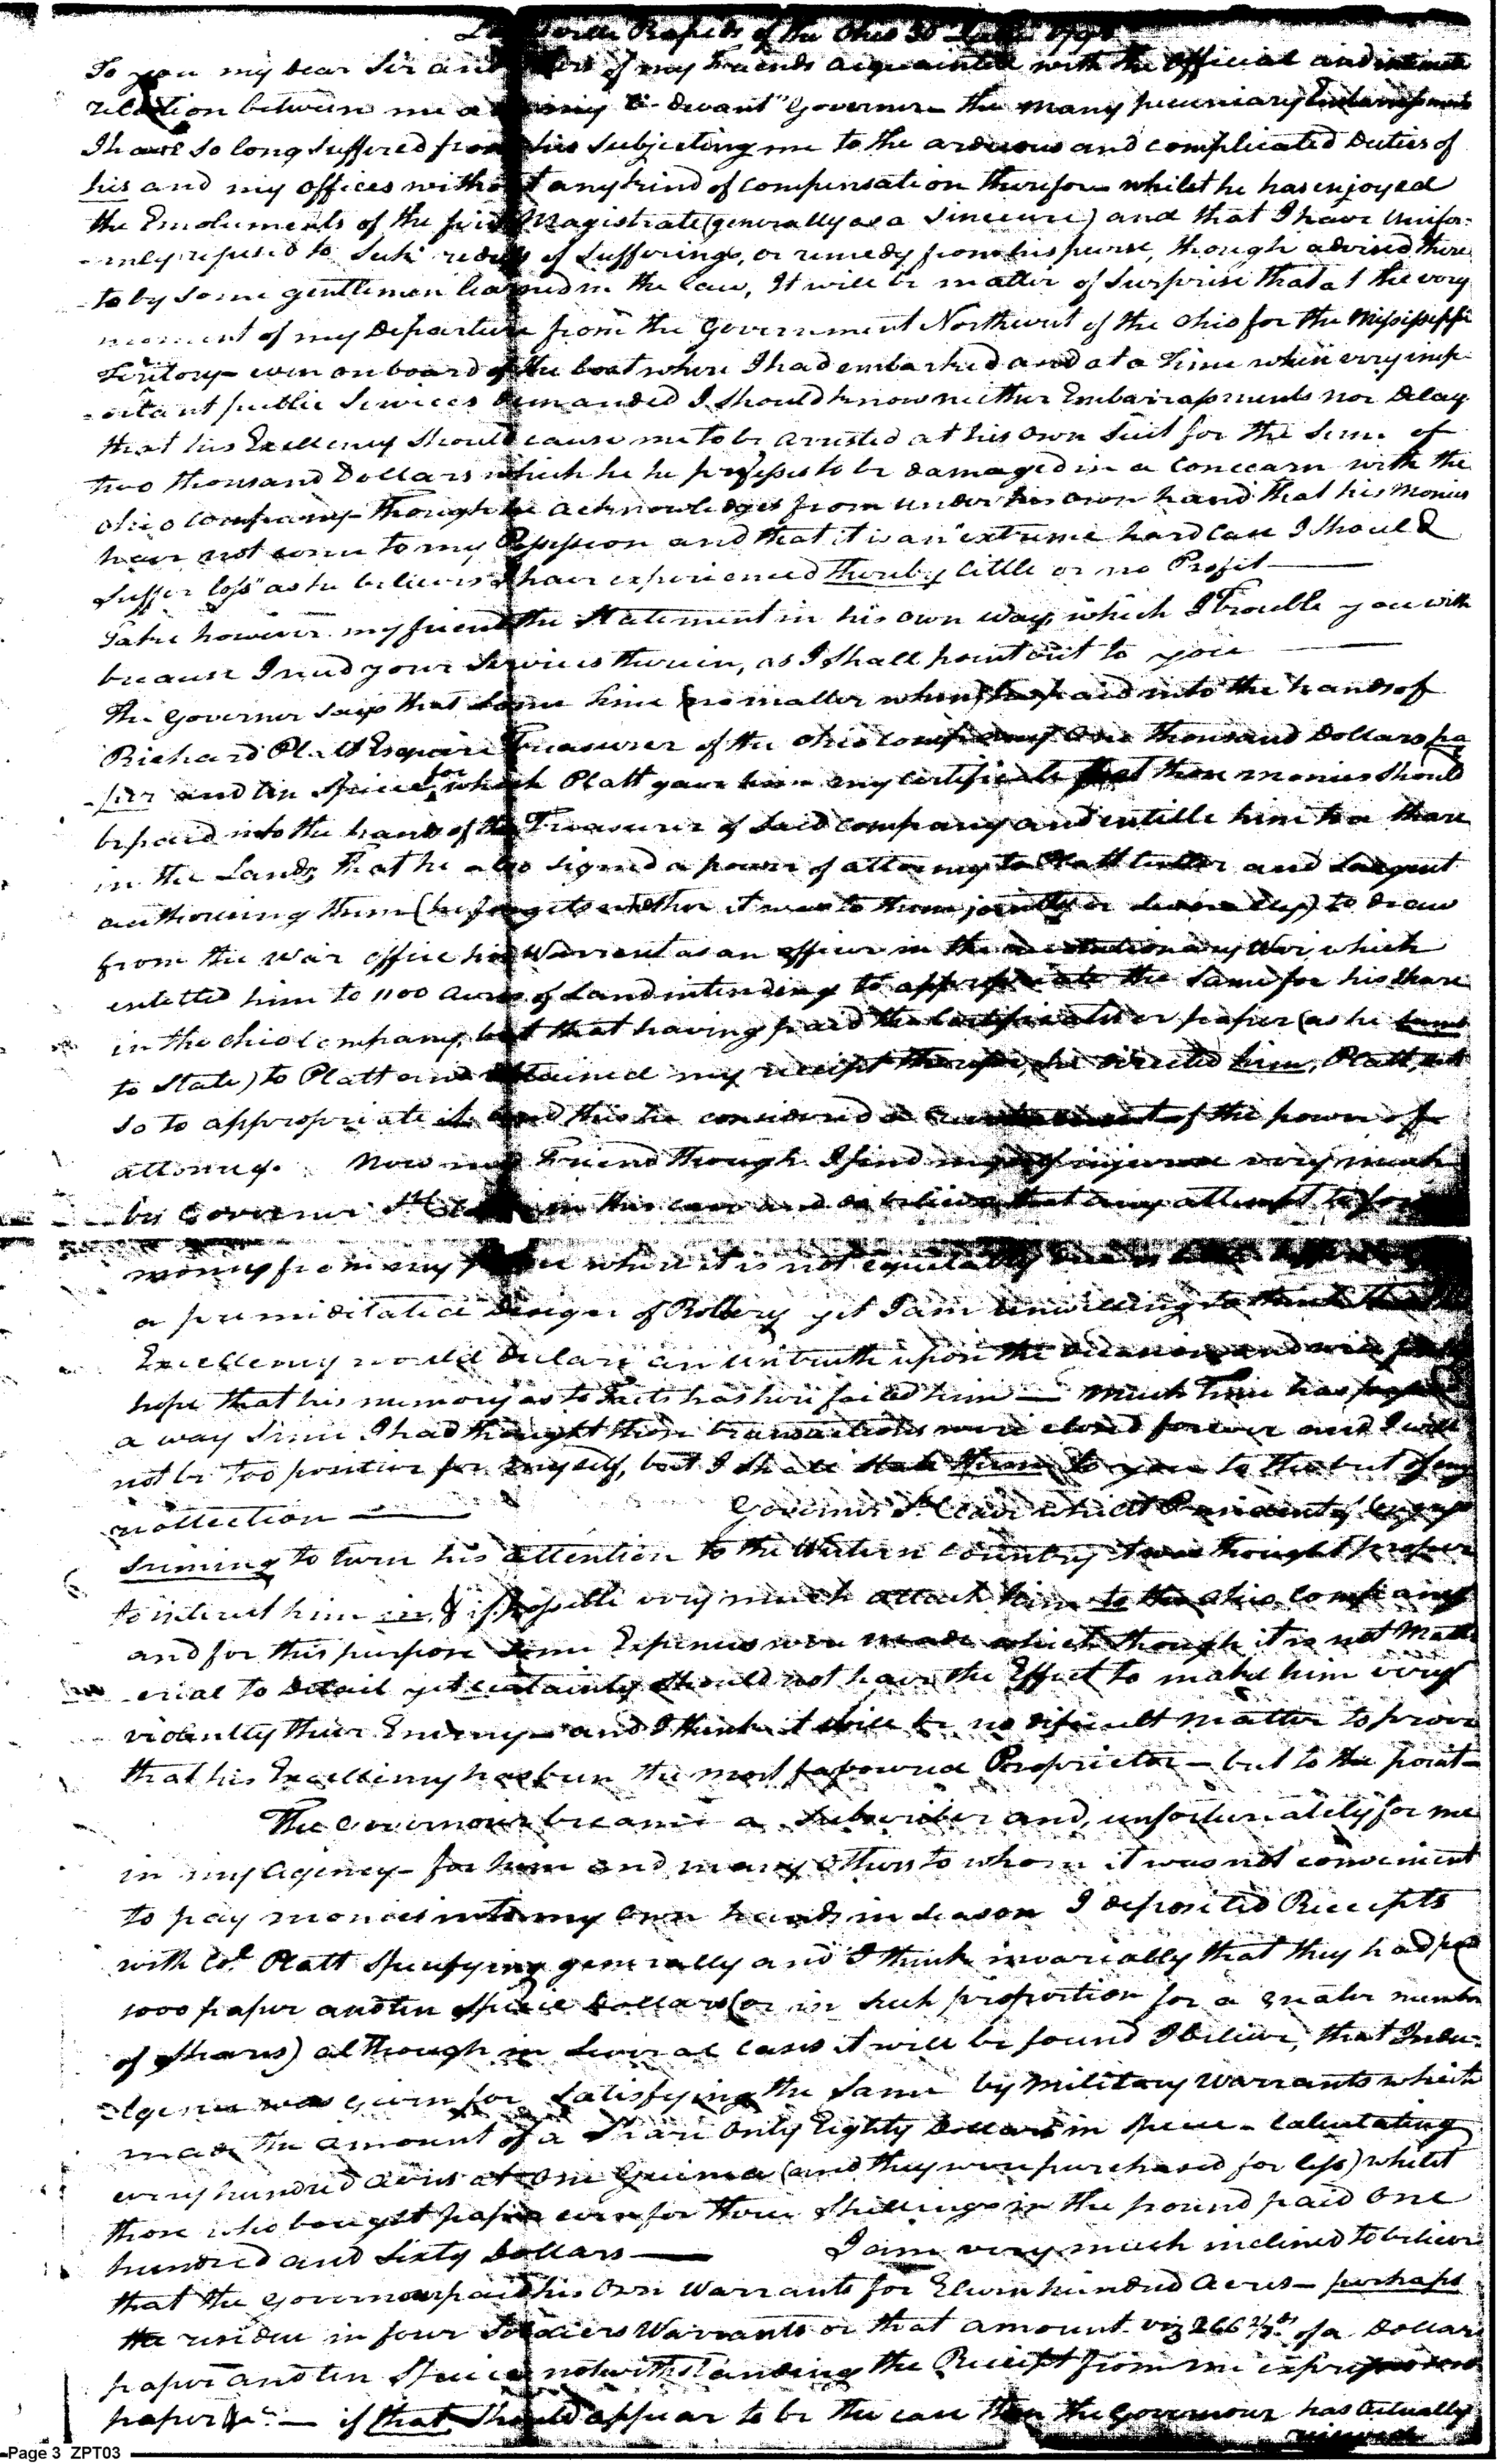 Rapids of the Ohio 30
To you my dear Sir and of my Friends acquainted with the official and intimate
relation between me and my "ci-devant" Governor the many pecuniary Embarrassments
I have so long suffered from his subjecting me to the arduous and complicated Duties of
his and my offices without any kind of compensation therefor whilst he has enjoyed
the Emoluments of the first Magistrate (generally as a Sinecure) and that I have unifor-
-mly refused to Seek redress of Sufferings, or remedy from his purse, though advised there
-to by some gentlemen learned in the law, It will be matter of Surprise that at the very
moment of my Departure from the Government Northwest of the Ohio for the Missisippi
Teritory - even on board of the boat where I had embarked and at a time when very imp-
-ortant public Services demanded I should know neither Embarrassments nor Delay
that his Excellency should cause me to be arrested at his own Suit for the Sum of
two thousand Dollars which he he professes to be damaged in a Concearn with the
Ohio Company - though he acknowledges from under his own hand that his Monies
have not come to my Possession and that it is an "extreme hard Case I Should
Suffer loss" as he believes I have experienced thereby little or no Profit —
Take however my friend the Statement in his own way, which I Trouble you with
because I need your Services therein, as I shall point out to you —
The Governor says that some time (no matter when) he paid into the hands of
Richard Platt Esquire Treasurer of the Ohio Company One thousand Dollars pa
-per and ten Specie for which Platt gave him my certificate that those monies should
be paid into the hands of the Treasurer of said company and entitle him to a share
in the Lands, that he also signed a power of attorney to Platt Cutler and Sargent
authorising them (he forgets whether it was to them jointly or severally) to draw
from the War office his Warrent as an officer in the revolutionary War, which
entitled him to 1100 acres of Land intending to appropriate the Same for his share
in the Ohio Company, but that having paid the Certificates or paper (as he
to State) to Platt and obtained my receipt therefor, he directed him, Platt, not
so to appropriate it and this he considered a of the power of
attorney. Now my Friend though I find myself injured very much
by Governor St Clair in this case and do believe that any attempt to
money from my purse where it is not equitably
a premeditated design of Robbery yet I am unwilling to think
Excellency would declare an untruth upon the occasion and will
hope that his memory as to Facts has here failed him — Much Time has passed
a way Since I had thought those transactions were closed forever and I will
not be too positive for myself, but I shall state them to you to the best of my
recollection — Governor St. Clair whilst President of Congress
seeming to turn his attention to the Western Country it was thought proper
to interest him in, & if possible very much attach him to the Ohio Company
and for this purpose some Expences were made which though it is not Mate
-erial to Detail yet certainly should not have the Effect to make him very
violently their Enemy - and I think it will be no dificult matter to prove
that his Excellency has been the most favoured Proprietor - but to the point -
The Governour became a Subscriber and, unfortunately for me
in my agency - for him and many others to whom it was not convenient
to pay monies into my own hands in season I deposited Receipts
with Col. Platt specifying generally and I think invariably that they had paid
1000 paper and ten Specie Dollars (or in such proportion for a greater number
of shares) although in several cases it will be found I believe, that Indu-
-lgence was given for satisfying the same by Military Warrants which
made the amount of a Share only Eighty Dollars in Specie - Calculating
every hundred acres at one Guinea (and they were purchased for less) whilst
those who bought paper even for three Shillings in the pound paid One
hundred and Sixty Dollars — I am very much inclined to believe
that the Governour paid his own Warrants for Eleven hundred Acres - perhaps
the residue in four Soldiers Warrants or that amount viz 266 2/3ds of a Dollars
paper and ten Specie notwithstanding the Receipt from me
paper &c. — if that should appear to be the case then the Governour has actually
received
Page 3 ZPT03